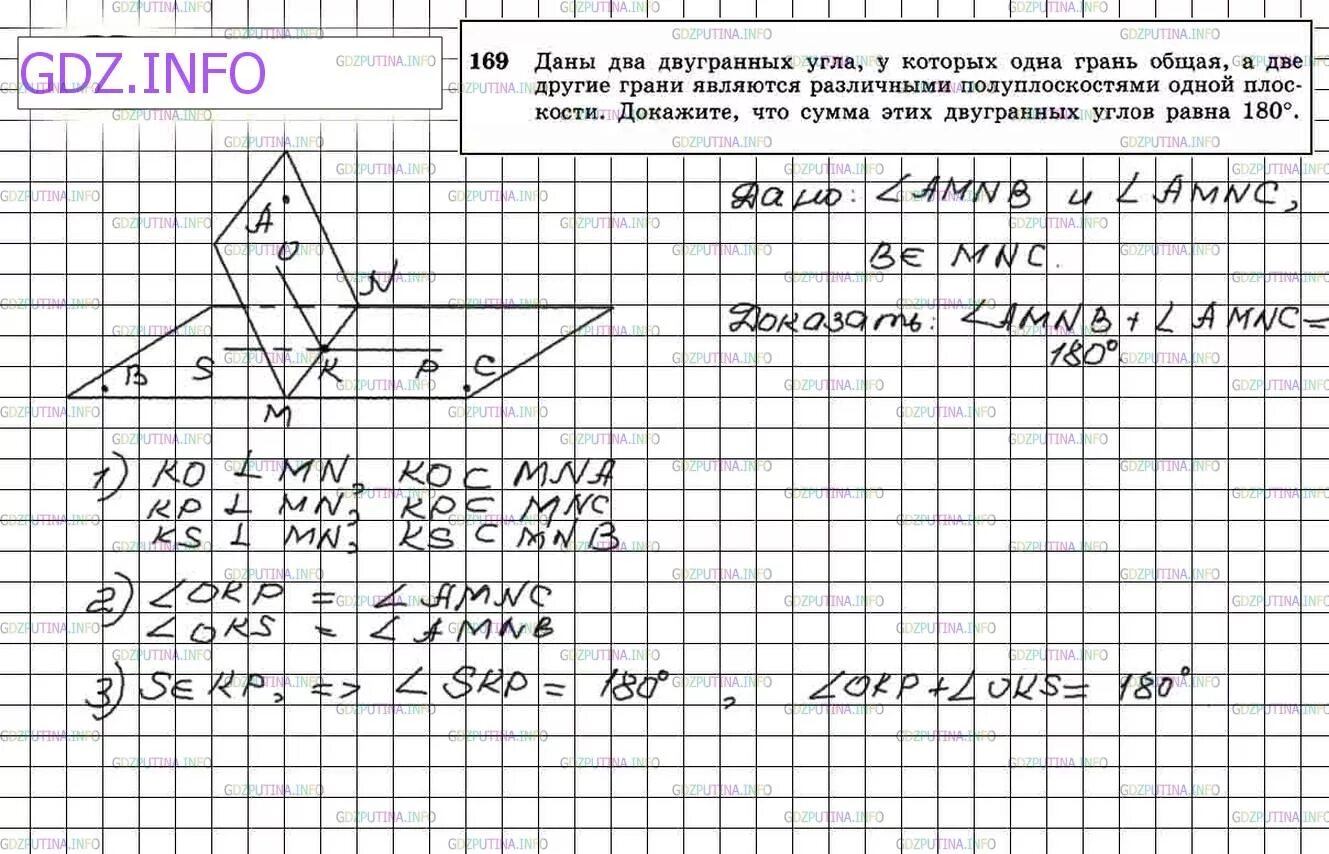 GDZ.INFO
169 Даны два двугранных угла, у которых одна грань общая, а две
другие грани являются различными полуплоскостями одной плос-
кости. Докажите, что сумма этих двугранных углов равна 180°.
Дано: ∠AMNB и ∠AMNC,
B∈ MNC.
Доказать: ∠AMNB + ∠AMNC =
180°
A
O
N
B S K P C
M
1) KO ⊥ MN, KO ⊂ MNA
KP ⊥ MN, KP ⊂ MNC
KS ⊥ MN, KS ⊂ MNB
2) ∠OKP = ∠AMNC
∠OKS = ∠AMNB
3) S∈KP, => ∠SKP = 180°, ∠OKP + ∠OKS = 180°
GDZPUTINA.INFO